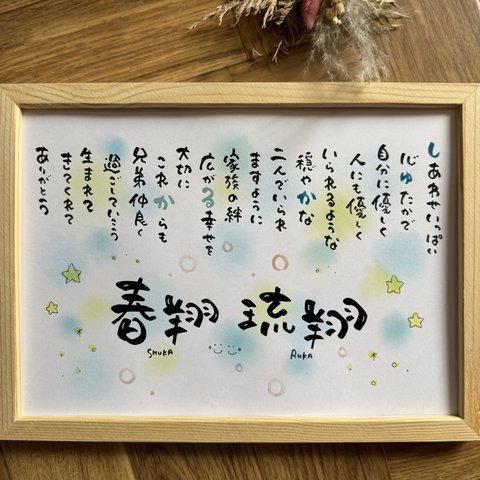 しあわせいっぱい
心ゆたかで
自分に優しく
人にも優しく
いられるような
穏やかな
二人でいられ
ますように
家族の絆
広がる幸せを
大切に
これからも
兄弟仲良く
過ごしていこう
生まれて
きてくれて
ありがとう
春翔 琉翔
SHUKA RUKA